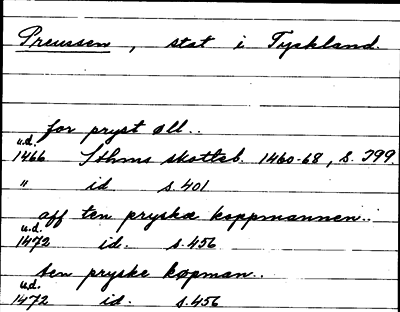 Preussen, stat i Tyskland.
for pryst öll..
u.d.
1466 Sthms skotteb. 1460-68, s. 399.
" id. s. 401
aff ten pryskæ koppmannen..
u.d.
1472 id. s. 456
ten pryske køpman..
u.d.
1472 id. s. 456